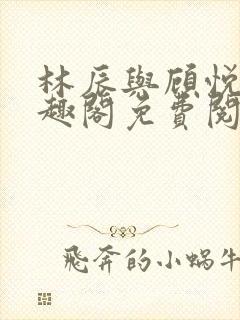 林辰與顧悅
趣閣免費閱
飛奔的小蝸牛